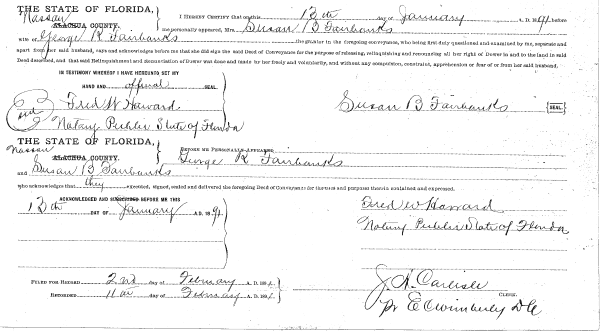 THE STATE OF FLORIDA,
Nassau
ALACHUA COUNTY.
I HEREBY CERTIFY that on this 13th day of January A. D. 1891, before
me personally appeared, Mrs. Susan B Fairbanks
wife of George R Fairbanks the grantor in the foregoing conveyance, who being first duly questioned and examined by me, separate and
apart from her said husband, says and acknowledges before me that she did sign the said Deed of Conveyance for the purpose of releasing, relinquishing and renouncing all her right of Dower in and to the land in the said
Deed described, and that said Relinquishment and renunciation of Dower was done and made by her freely and voluntarily, and without any compulsion, constraint, apprehension or fear of or from her said husband.
IN TESTIMONY WHEREOF I HAVE HEREUNTO SET MY
HAND AND official SEAL.
Fred W Harvard
Susan B Fairbanks SEAL
Seal
Notary Public State of Florida
THE STATE OF FLORIDA,
Nassau
ALACHUA COUNTY.
BEFORE ME PERSONALLY APPEARED
George R Fairbanks
and Susan B Fairbanks
who acknowledge that they executed, signed, sealed and delivered the foregoing Deed of Conveyance for the uses and purposes therein contained and expressed.
ACKNOWLEDGED AND SUBSCRIBED BEFORE ME THIS
13th DAY OF January A. D. 1891
Fred W Harvard
Notary Public State of Florida
FILED FOR RECORD 2nd day of February A. D. 1891
RECORDED 11th day of February A. D. 1891
J. A. Carlisle
CLERK.
Pr E C Wimberly D C